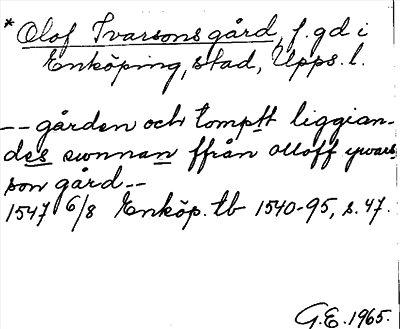 * Olof Ivarsons gård, f. gd i
Enköping, stad, Upps. l.
-- gården och tomptt liggian-
des swnnan ffrån olloff ywars
son gård --
1547 6/8 Enköp. tb 1540-95, s. 47.
G.E. 1965.